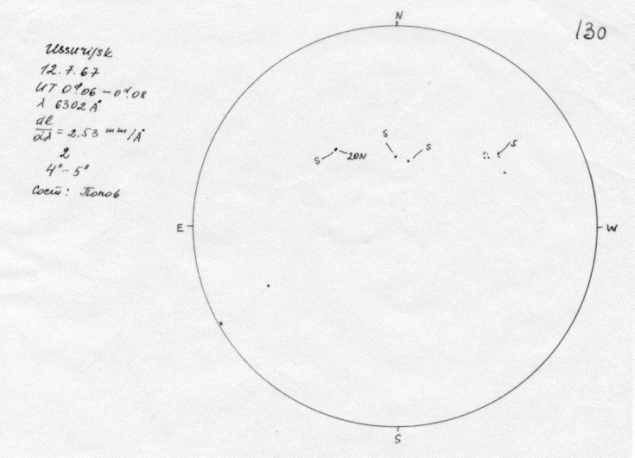 Ussurijsk
12.7.67
UT 0ʰ06 – 0ʰ08
λ 6302 Å
dl/dλ = 2.53 mm/Å
2
4" – 5"
Сост: Попов
130
N
S
20N
S
S
S
E
W
S